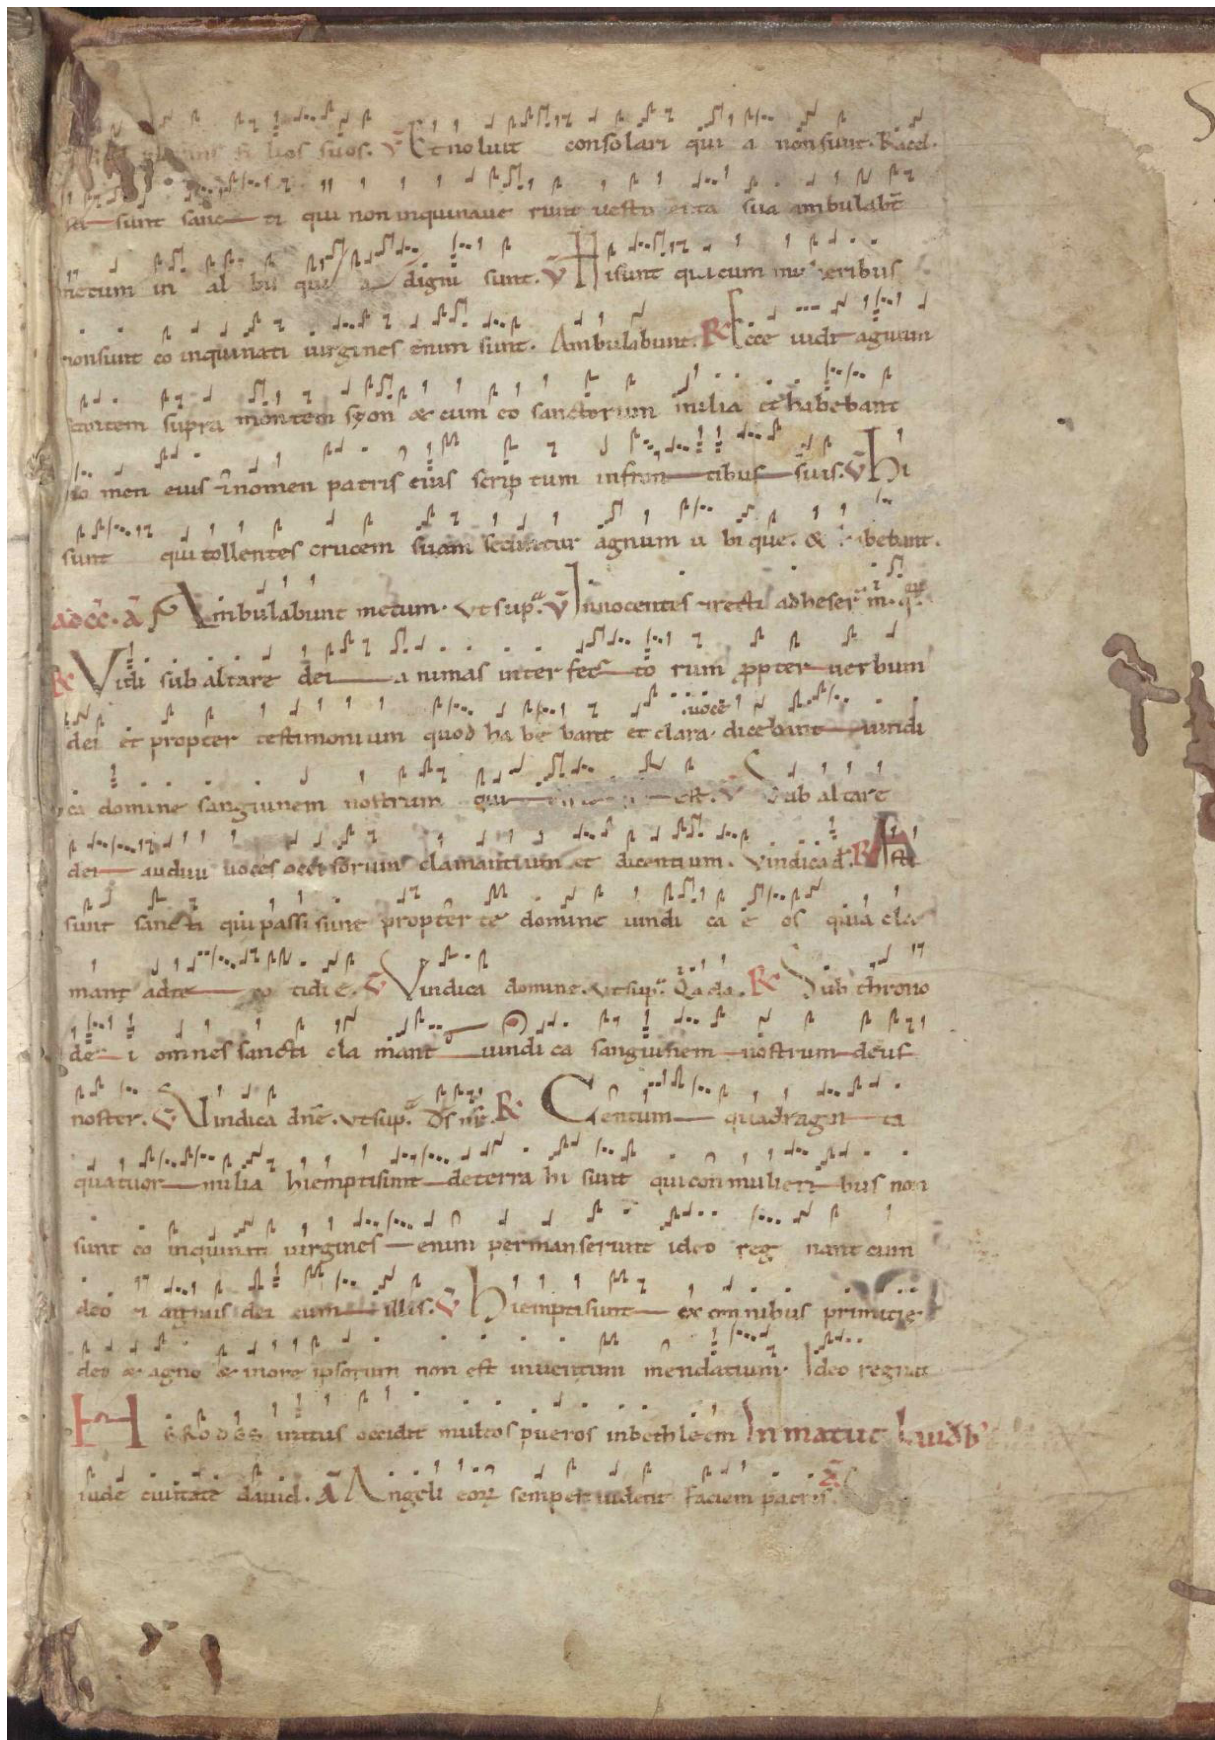 filios suos. V Et noluit consolari qui a non sunt. Racel.
sti sunt sancti qui non inquinaue runt uesti sua ambulabt̄
mecum in al bu qui digni sunt. V Hi sunt qui cum mulieribus
non sunt co inquinati uirgines enim sunt. Ambulabunt. R Ecce uidi agnum
stantem supra montem syon & cum eo sanctorum milia et habebant
no men eius & nomen patris eius scrip tum in fron tibus suis. V Hi
sunt qui tollentes crucem suam secuntur agnum u bi que. & habebant.
ad cc̄. a Ambulabunt mecum. ut sup. V Innocentes & recti adheser̄ m̄. q̄
R Vidi sub altare dei animas inter fec to rum p̄pter uerbum
dei et propter testimonium quod ha be bant et clara uoce dicebant uindi
ca domine sanguinem nostrum qui est. V Sub altare
dei audiui uoces occisorum clamantium et dicentium. Vindica d. R Isti
sunt sancti qui passi sunt propter te domine uindi ca e os quia cla
mant ad te co tidi e. V Vindica domine. ut sup. Q̄a cla. R Sub throno
de i omnes sancti cla mant uindi ca sanguinem nostrum deus
noster. V Vindica dn̄e. ut sup. D̄s nr̄. R Centum quadragin ta
quatuor milia hi empti sunt de terra hi sunt qui con mulieri bus non
sunt co inquinati uirgines enim permanserunt ideo reg nant cum
deo & agnus dei cum illis. V Hi empti sunt ex omnibus primitie
deo & agno & in ore ipsorum non est inuentum mendatium. Ideo regnant
HERODES iratus occidit multos pueros in bethleem In matut Laudib'
iude ciuitate dauid. A Angeli eorꝝ semper uident faciem patris. A